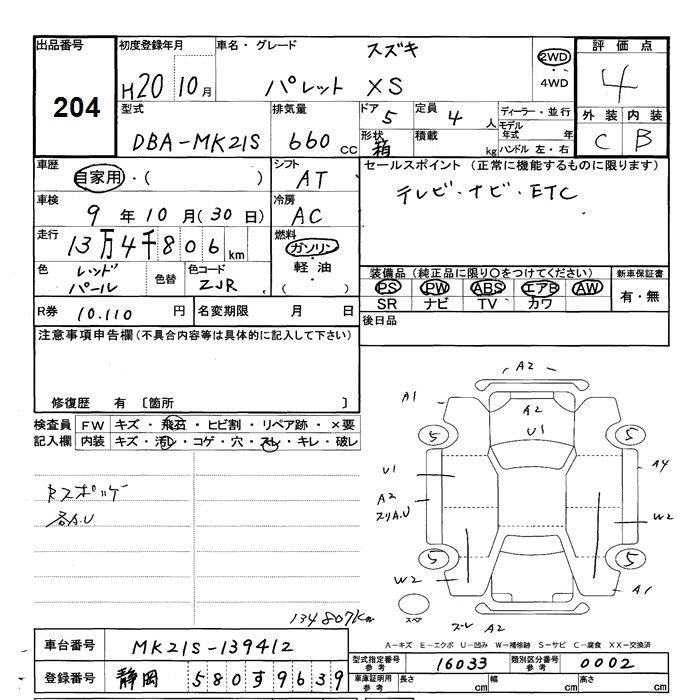 出品番号 204
初度登録年月 H20 10月
車名・グレード スズキ パレット XS
2WD・4WD
評価点 4
外装 C 内装 B
型式 DBA-MK21S
排気量 660cc
ドア 5
形状 箱
定員 4人
積載 kg
ディーラー・並行
モデル年式 年
ハンドル 左・右
車歴 自家用・( )
シフト AT
セールスポイント (正常に機能するものに限ります)
テレビ・ナビ・ETC
車検 9年10月(30日)
冷房 AC
走行 13万4千806km
燃料 ガソリン・軽油・( )
色 レッドパール
色替
色コード ZJR
装備品 (純正品に限り○をつけてください)
PS PW ABS エアB AW
SR ナビ TV カワ
新車保証書 有・無
R券 10.110円
名変期限 月 日
後日品
注意事項申告欄(不具合内容等は具体的に記入して下さい)
修復歴 有 〔箇所 〕
検査員記入欄
FW キズ・飛石・ヒビ割・リペア跡・×要
内装 キズ・汚レ・コゲ・穴・スレ・キレ・破レ
各A.U
A2
A1
A2
U1
5 5
U1
A4
A2
スリA.U
W2
5 5
W2
A1
スペア
A2
134807km
A-キズ E-エクボ U-凹み W-補修跡 S-サビ C-腐食 XX-交換済
車台番号 MK21S-139412
型式指定番号 参考 16033
類別区分番号 参考 0002
登録番号 静岡 580す9639
車庫証明用 参考 長さ cm 幅 cm 高さ cm